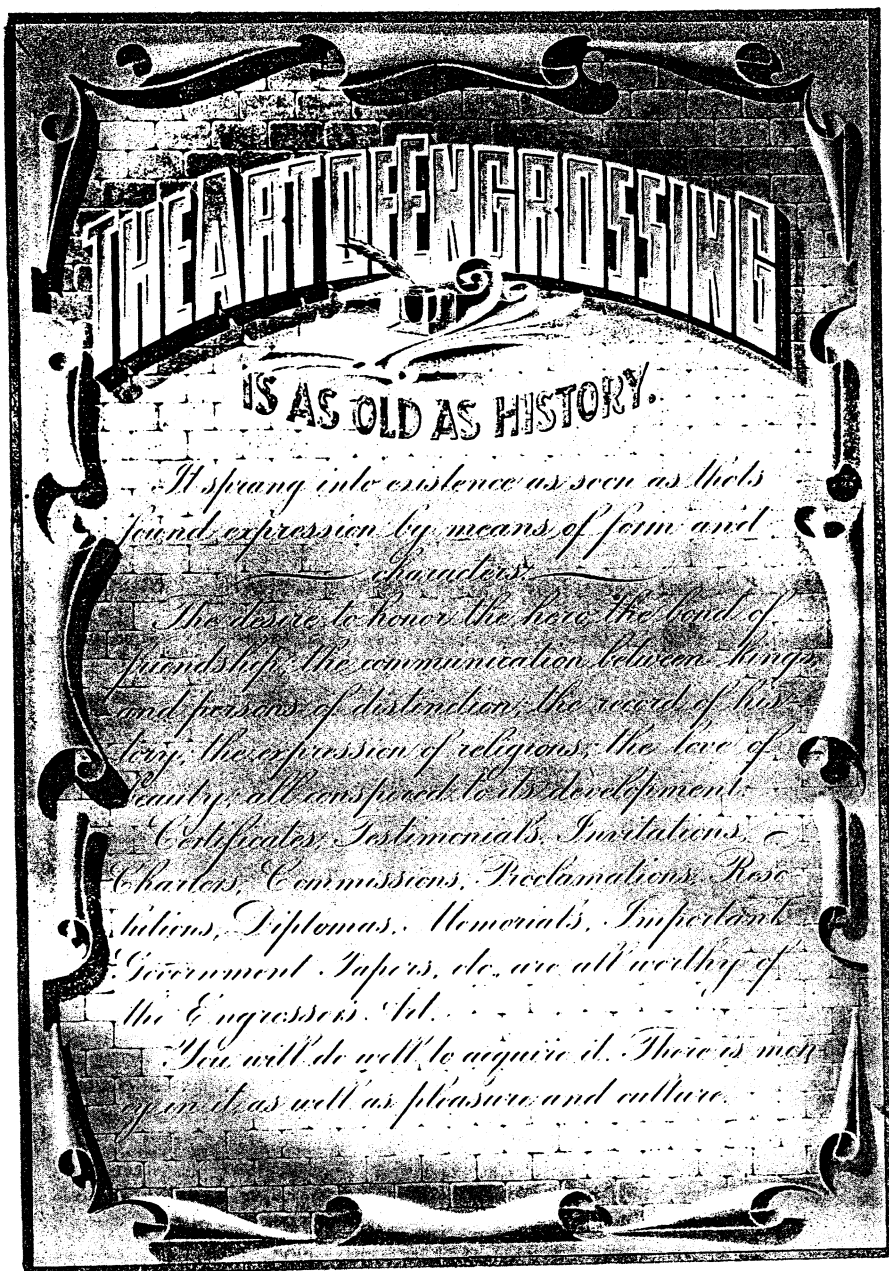 THE ART OF ENGROSSING
IS AS OLD AS HISTORY.
It sprang into existence as soon as thots
found expression by means of form and
characters.
The desire to honor the hero; the bond of
friendship; the communication between kings
and persons of distinction; the record of his-
tory; the expression of religions; the love of
beauty; all conspired to its development.
Certificates, Testimonials, Invitations,
Charters, Commissions, Proclamations, Reso-
lutions, Diplomas, Memorials, Important
Government Papers, etc., are all worthy of
the Engrosser's Art.
You will do well to acquire it. There is mon-
ey in it as well as pleasure and culture.